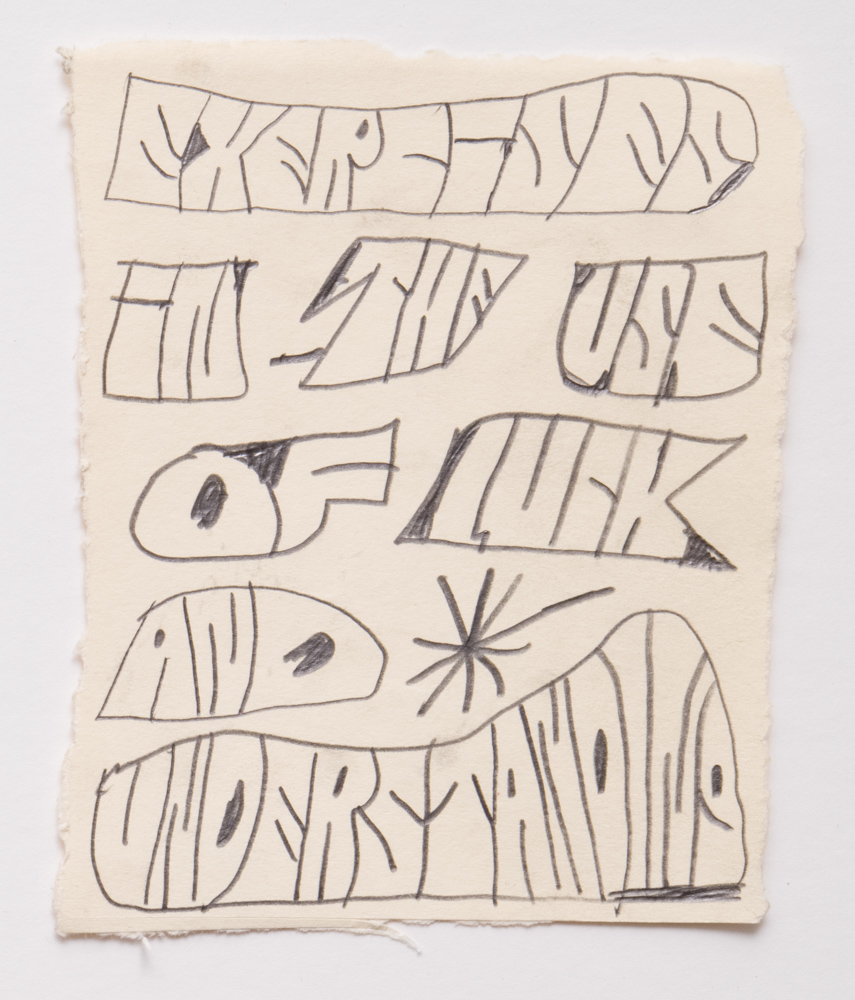 EXERCISES
IN THE USE
OF LUCK
AND
UNDERSTANDING